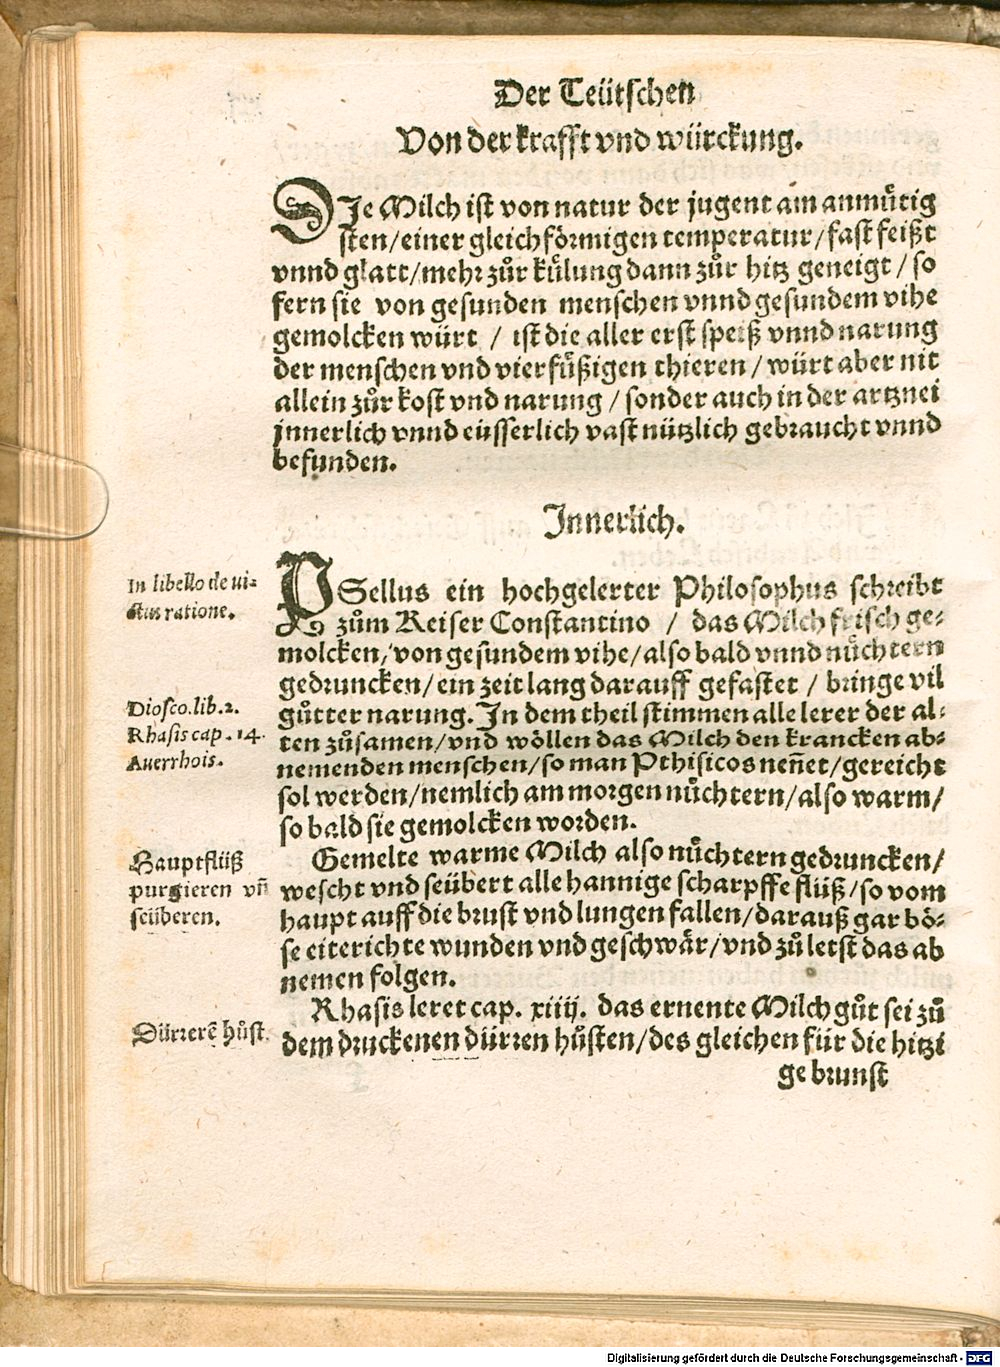 Der Teütschen
Von der krafft vnd würckung.
DJe Milch ist von natur der jugent am anmůtig
sten/einer gleichförmigen temperatur/fast feißt
vnnd glatt/mehr zůr kůlung dann zůr hitz geneigt/so
fern sie von gesunden menschen vnnd gesundem vihe
gemolcken würt / ist die aller erst speiß vnnd narung
der menschen vnd vierfůßigen thieren/würt aber nit
allein zůr kost vnd narung/sonder auch in der artznei
jnnerlich vnnd eüsserlich vast nützlich gebraucht vnnd
befunden.
Jnnerlich.
In libello de ui-
ctus ratione.
PSellus ein hochgelerter Philosophus schreibt
zům Keiser Constantino / das Milch frisch ge-
molcken/von gesundem vihe/also bald vnnd nůchtern
gedruncken/ein zeit lang darauff gefastet / bringe vil
Diosco.lib.2.
Rhasis cap.14.
Auerrhois.
gůtter narung. Jn dem theil stimmen alle lerer der al-
ten zůsamen/vnd wöllen das Milch den krancken ab-
nemenden menschen/so man Pthisicos neñet/gereicht
sol werden/nemlich am morgen nůchtern/also warm/
so bald sie gemolcken worden.
Hauptflüß
purgieren vñ
seüberen.
Gemelte warme Milch also nůchtern gedruncken/
wescht vnd seübert alle hannige scharpffe flüß/so vom
haupt auff die brust vnd lungen fallen/darauß gar bö-
se eiterichte wunden vnd geschwär/vnd zů letst das ab
nemen folgen.
Dürrerē hůst.
Rhasis leret cap. xiiij. das ernente Milch gůt sei zů
dem druckenen dürren hůsten/des gleichen für die hitzi
ge brunst
Digitalisierung gefördert durch die Deutsche Forschungsgemeinschaft - DFG